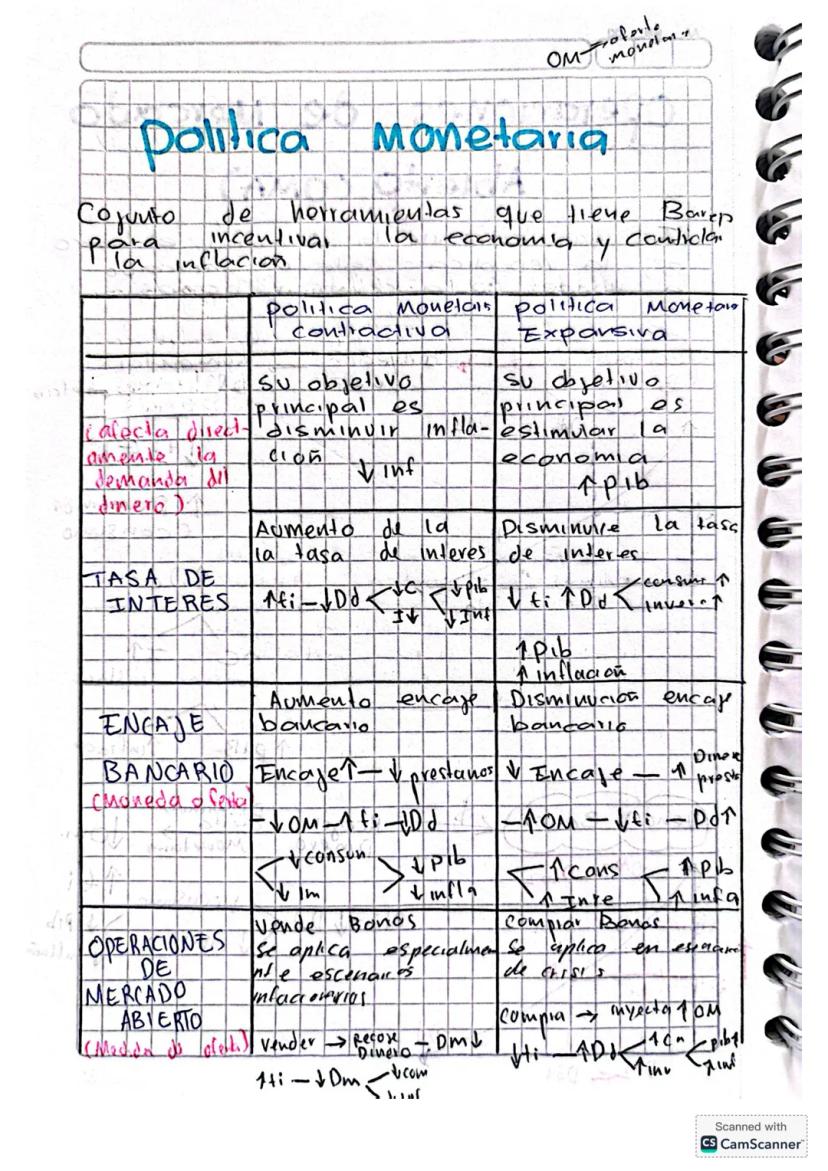 OM → oferta
monetar.
Politica Monetaria
Cojunto de herramientas que tiene Banrep
para incentivar la economia y controlar
la inflacion
politica Monetaria
contractiva
politica Monetaria
Expansiva
(afecta direct-
amente la
demanda del
dinero)
su objetivo
principal es
disminuir infla-
cion
↓ inf
su objetivo
principal es
estimular la
economia
↑ pib
TASA DE
INTERES
Aumento de la
la tasa de interes
↑ti - ↓Dd < ↓C < ↓pib
I↓ ↓Inf
Disminuire la tasa
de interes
↓ ti ↑ Dd < consum ↑
inver ↑
↑ Pib
↑ inflacion
ENCAJE
BANCARIO
(Moneda oferta)
Aumento encaje
bancario
Encaje↑ - ↓ prestanos
- ↓ OM - ↑ ti - ↓Dd
< ↓ consun > ↓ pib
↓ Im ↓ infla
Disminucion encaje
bancario
↓ Encaje - ↑ Dinero
prest
- ↑OM - ↓ti - Dd↑
< ↑ Cons < ↑ Pib
↑ Inve ↑ infa
OPERACIONES
DE
MERCADO
ABIERTO
Vende Bonos
Se aplica especialmen
escenarios
vender → recoge - Dm↓
Dinero
↑ti - ↓Dm < ↓com
comprar Bonos
Se aplica en
de crisis
compra → inyecta ↑ OM
↓ti - ↑Dd < ↑Cn < pib↑
↑inv ↑inf
Scanned with
CS CamScanner